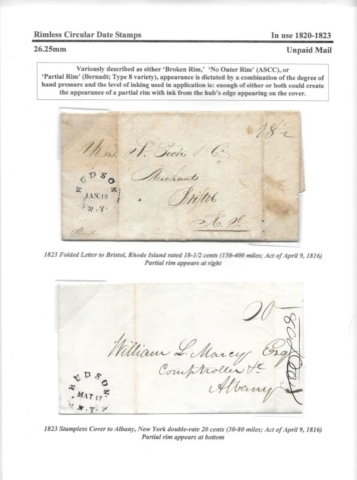 Rimless Circular Date Stamps In use 1820-1823
26.25mm Unpaid Mail
Variously described as either 'Broken Rim,' 'No Outer Rim' (ASCC), or
'Partial Rim' (Bernadt; Type 8 variety), appearance is dictated by a combination of the degree of
hand pressure and the level of inking used in application ie: enough of either or both could create
the appearance of a partial rim with ink from the hub's edge appearing on the cover.
18½
HUDSON
JAN 19
N.Y.
Merchants
Bristol
R. I.
1823 Folded Letter to Bristol, Rhode Island rated 18-1/2 cents (150-400 miles; Act of April 9, 1816)
Partial rim appears at right
20
William L Marcy Esq
Comptroller &c
Albany
HUDSON
MAY 17
N.Y.
1823 Stampless Cover to Albany, New York double-rate 20 cents (30-80 miles; Act of April 9, 1816)
Partial rim appears at bottom